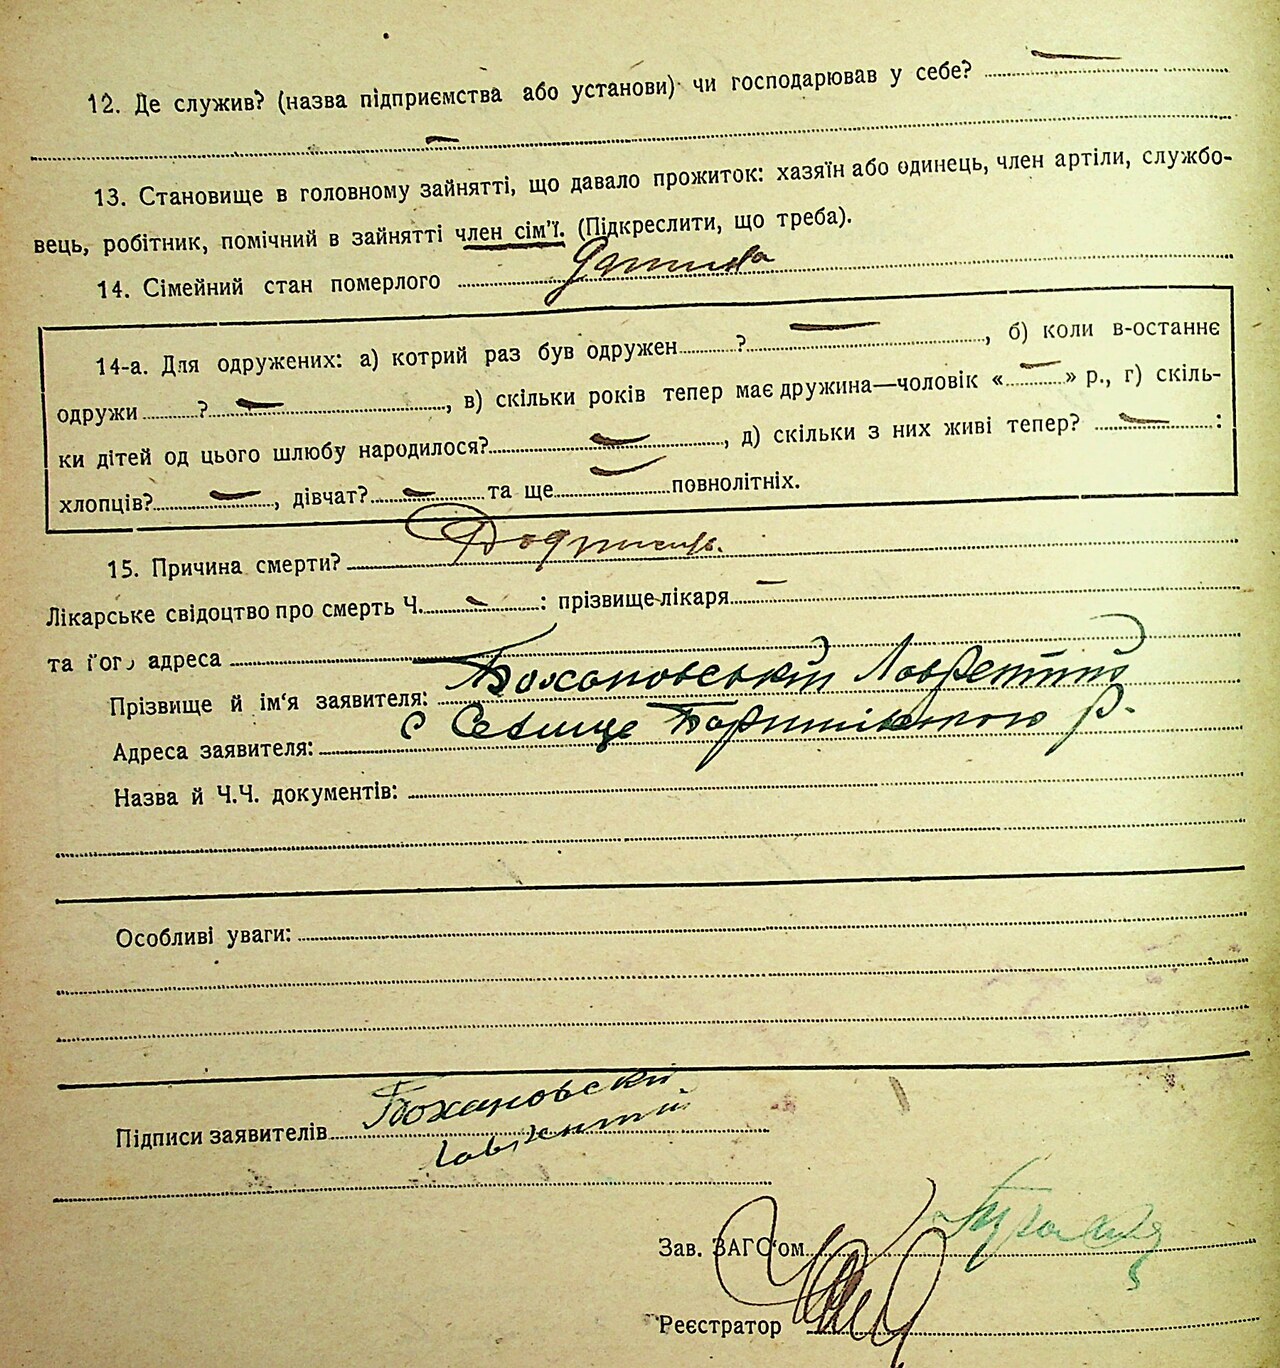 12. Де служив? (назва підприємства або установи) чи господарював у себе? —
—
13. Становище в головному зайнятті, що давало прожиток: хазяїн або одинець, член артіли, службо-
вець, робітник, помічний в зайнятті член сім'ї. (Підкреслити, що треба).
14. Сімейний стан померлого
14-а. Для одружених: а) котрий раз був одружен ? —, б) коли в-останнє
одружи ? —, в) скільки років тепер має дружина—чоловік «—» р., г) скіль-
ки дітей од цього шлюбу народилося? —, д) скільки з них живі тепер? — :
хлопців? —, дівчат? — та ще — повнолітніх.
15. Причина смерти?
Лікарське свідоцтво про смерть Ч. — : прізвище-лікаря —
та його адреса —
Прізвище й ім'я заявителя: Бохановський
Адреса заявителя: с Селище р.
Назва й Ч.Ч. документів:
Особливі уваги:
Підписи заявителів Бохановский
Зав. ЗАГС'ом
Реєстратор